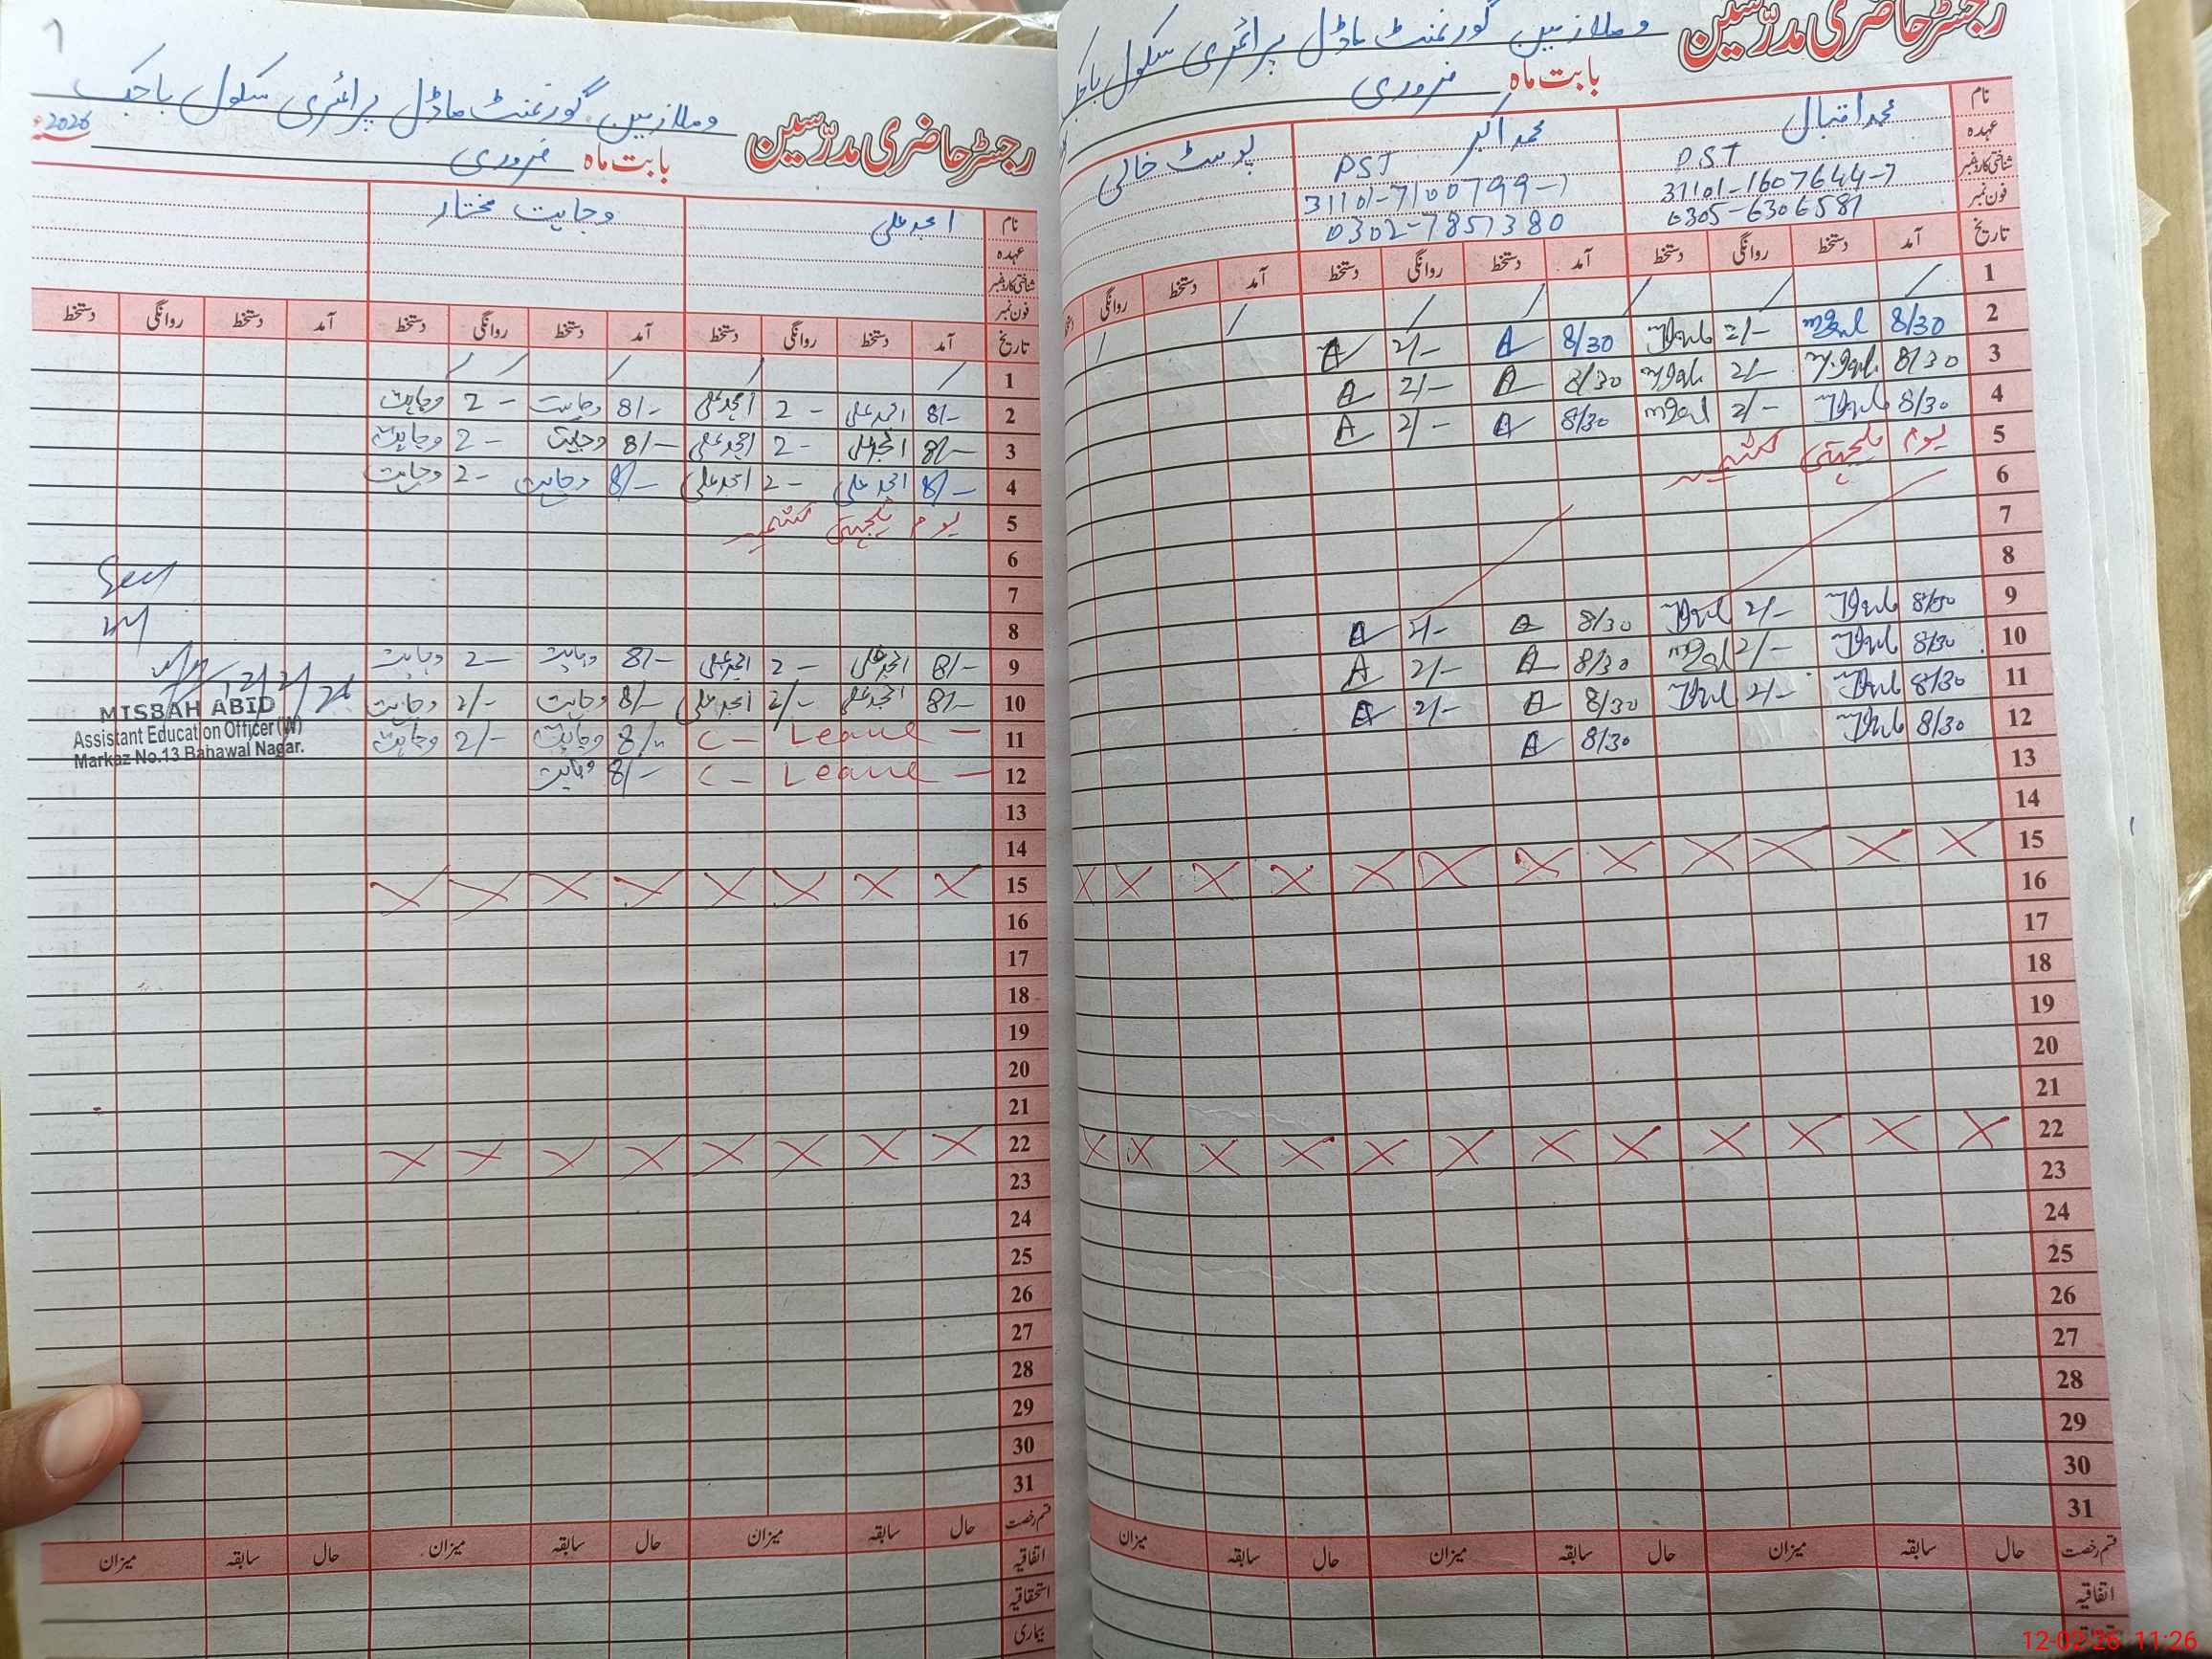 رجسٹر حاضری مدرّسین و ملازمین گورنمنٹ ماڈل پرائمری سکول
بابت ماہ فروری
نام محمد اقبال محمد اکبر پوسٹ خالی
عہدہ PST PST
شناختی کارڈ نمبر 31101-1607644-7 31101-7100799-1
فون نمبر 0305-6306581 0302-7851380
تاریخ آمد دستخط روانگی دستخط آمد دستخط روانگی دستخط آمد دستخط روانگی
1
2 8/30 2/- 8/30 A 2/- A
3 8/30 2/- 8/30 A 2/- A
4 8/30 2/- 8/30 A 2/- A
5 یوم یکجہتی کشمیر
6
7
8
9 8/30 2/- 8/30 A 2/- A
10 8/30 2/- 8/30 A 2/- A
11 8/30 2/- 8/30 A 2/- A
12 8/30 8/30 A
13
14
15 X X X X X X X X X X X X
16
17
18
19
20
21
22 X X X X X X X X X X X X
23
24
25
26
27
28
29
30
31
قسم رخصت حال سابقہ میزان حال سابقہ میزان حال سابقہ میزان
اتفاقیہ
12-02-26 11:26
رجسٹر حاضری مدرّسین و ملازمین گورنمنٹ ماڈل پرائمری سکول
بابت ماہ فروری 2026
نام امجد علی وجاہت مختار
عہدہ
شناختی کارڈ نمبر
فون نمبر
تاریخ آمد دستخط روانگی دستخط آمد دستخط روانگی دستخط آمد دستخط روانگی دستخط
1
2 8/- امجد علی 2 - امجد علی 8/- وجاہت 2 - وجاہت
3 8/- امجد علی 2 - امجد علی 8/- وجاہت 2 - وجاہت
4 8/- امجد علی 2 - امجد علی 8/- وجاہت 2 - وجاہت
5 یوم یکجہتی کشمیر
6
7
8
9 8/- امجد علی 2 - امجد علی 8/- وجاہت 2 - وجاہت
10 8/- امجد علی 2/- امجد علی 8/- وجاہت 2/- وجاہت
11 C - Leave - 8/- وجاہت 2/- وجاہت
12 C - Leave - 8/- وجاہت
13
14
15 X X X X X X X X
16
17
18
19
20
21
22 X X X X X X X X
23
24
25
26
27
28
29
30
31
قسم رخصت حال سابقہ میزان حال سابقہ میزان حال سابقہ میزان
اتفاقیہ
استحقاقیہ
بیماری
Seen
12/2/26
MISBAH ABID
Assistant Education Officer (W)
Markaz No.13 Bahawal Nagar.